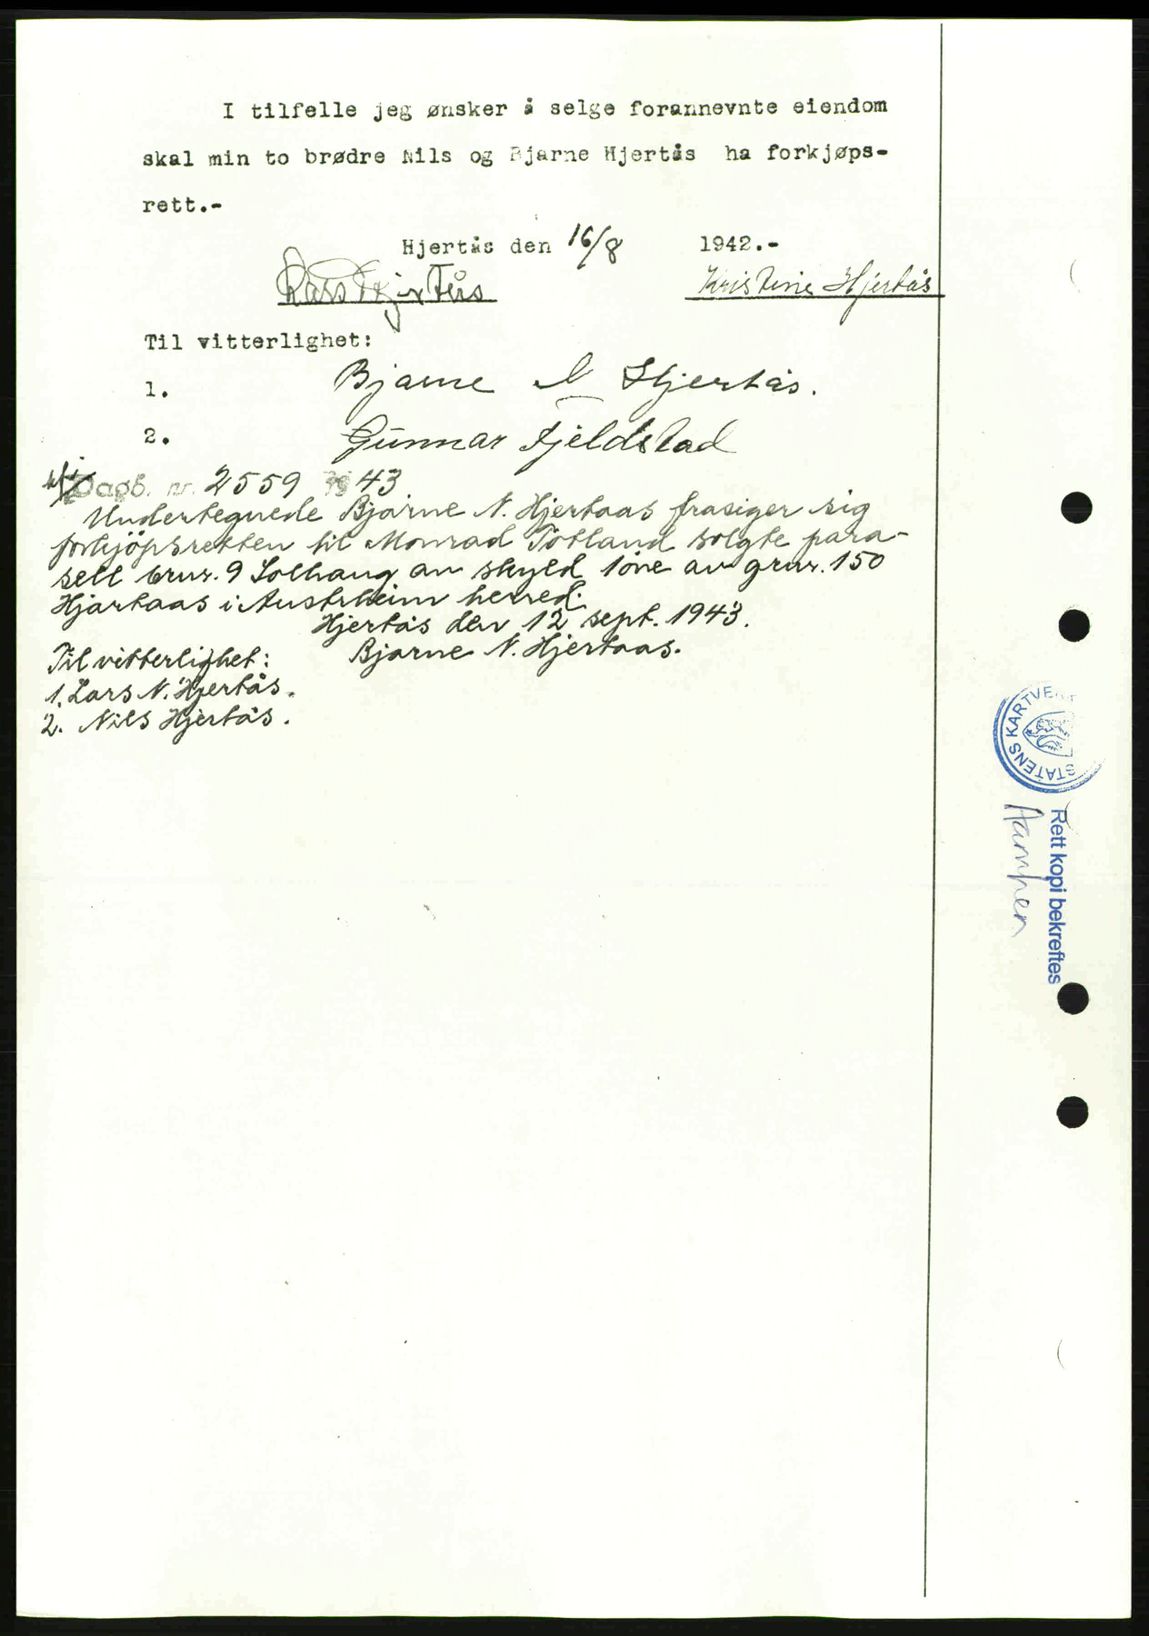 I tilfelle jeg ønsker å selge forannevnte eiendom
skal min to brødre Nils og Bjarne Hjertås ha forkjøps-
rett.-
Hjertås den 16/8 1942.-
Lars Hjertås Kristine Hjertås
Til vitterlighet:
1. Bjarne N Hjertås.
2. Gunnar Fjeldstad
Dagb. nr. 2559 19 43
Undertegnede Bjarne N. Hjertaas frasiger sig
forkjöpsretten til Monrad Totland solgte para-
sell brnr. 9 Solhaug av skyld 1öre av grnr. 150
Hjartaas i Austrheim herred.
Hjertås den 12 sept. 1943.
Til vitterlighet: Bjarne N. Hjertaas.
1. Lars N. Hjertås.
2. Nils Hjertås.
STATENS KARTVE
Rett kopi bekreftes